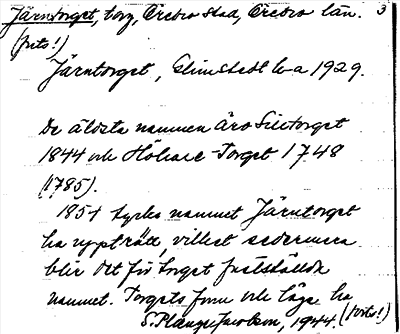 Järntorget, torg, Örebro stad, Örebro län. 3
(forts!)
Järntorget, Elmstedt 1929.
De äldsta namnen äro Silltorget
1844 och Torget 1748
(1785).
1854 tycks namnet Järntorget
ha uppstått, vilket sedermera
blir det för torget fastställda
namnet. Torgets form och läge ha
(forts!)
S. 1944.